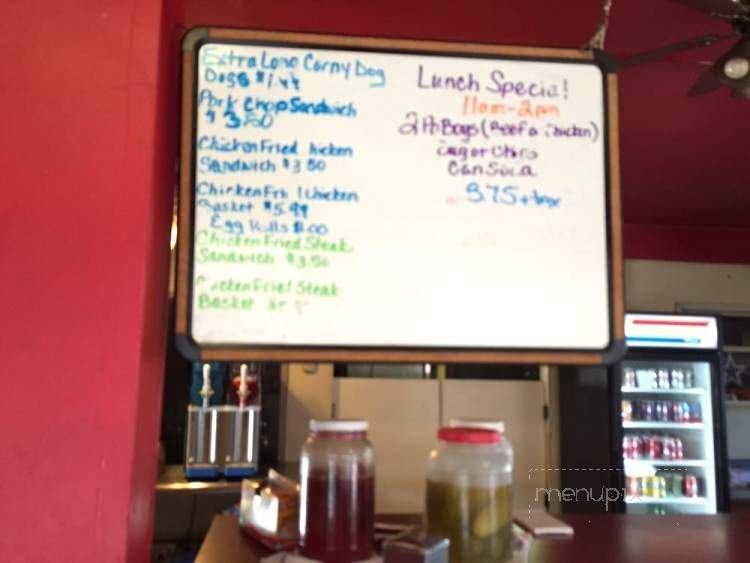 Extra Long Corny Dog
Dogs $1.49
Pork Chop Sandwich
$3.50
Chicken Fried hicken
Sandwich $3.50
Chicken Fri Chicken
Basket $5.99
Egg Rolls $1.00
Chicken Fried Steak
Sandwich $3.50
Chicken Fried Steak
Basket
Lunch Special!
11am-2pm
2 Po Boys (Beef or Chicken)
Can Soda
3.75 + tax
menupix